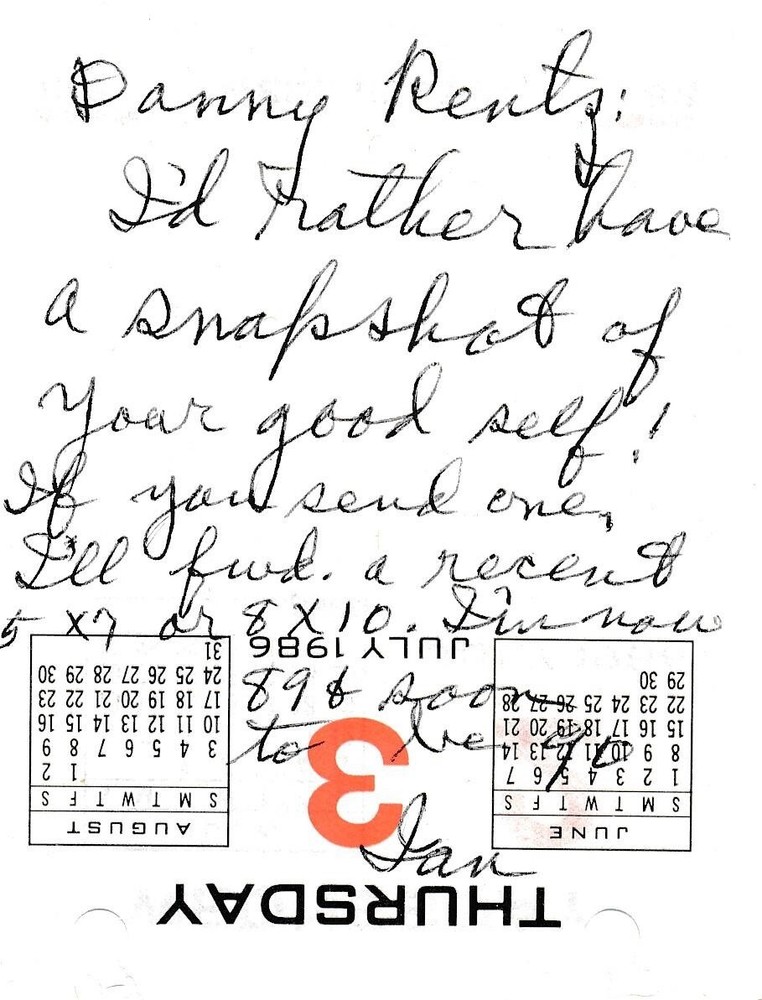 Danny Rentz:
I'd rather have
a snapshot of
your good self!
If you send one,
I'll fwd. a recent
5 x 7 or 8 X 10. I'm now
89 & soon
to be 90
Ian
THURSDAY
3
JULY 1986
JUNE
S M T W T F S
1 2 3 4 5 6 7
8 9 10 11 12 13 14
15 16 17 18 19 20 21
22 23 24 25 26 27 28
29 30
AUGUST
S M T W T F S
1 2
3 4 5 6 7 8 9
10 11 12 13 14 15 16
17 18 19 20 21 22 23
24 25 26 27 28 29 30
31